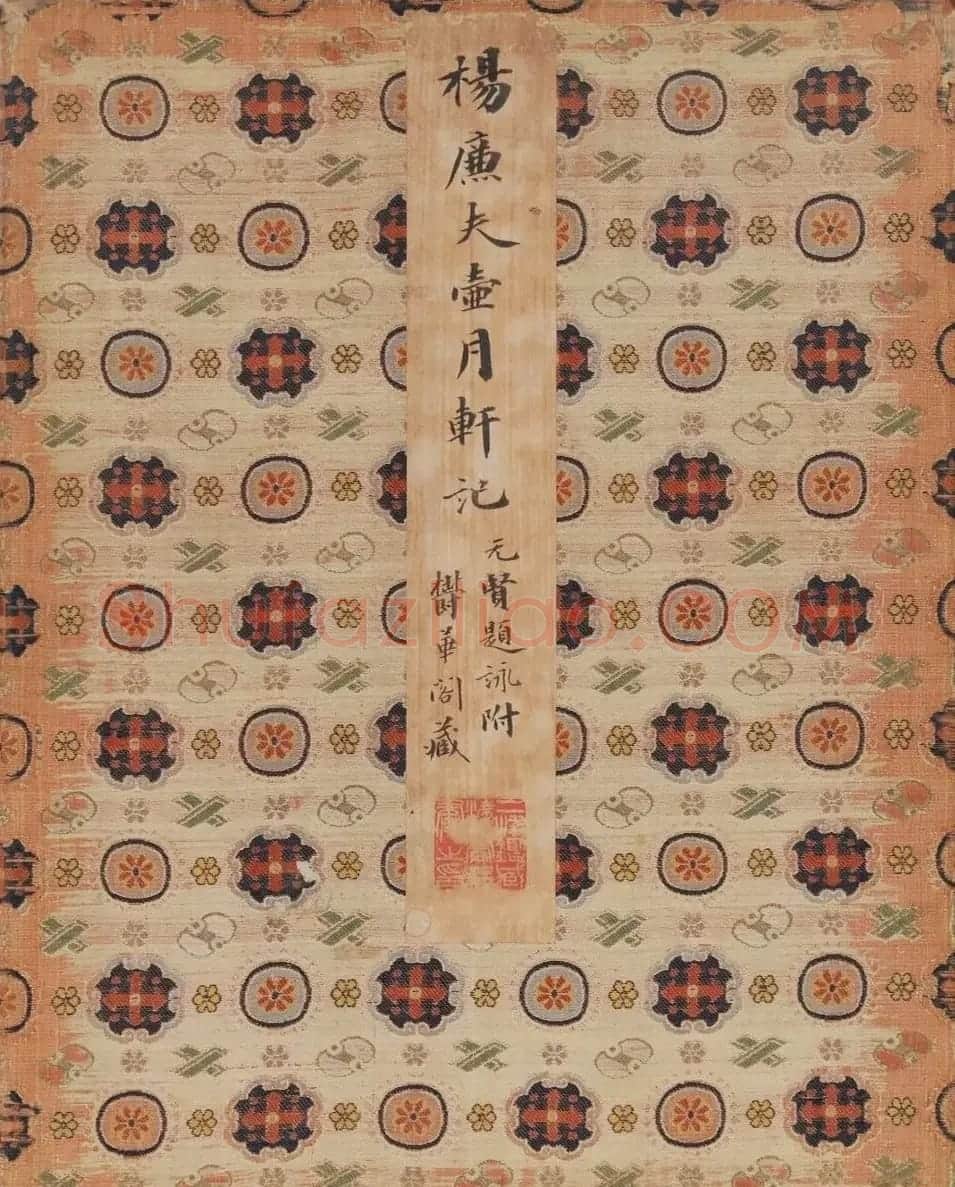 楊廉夫壺月軒記
元賢題詠附
樹華閣藏
shufaziliao.com